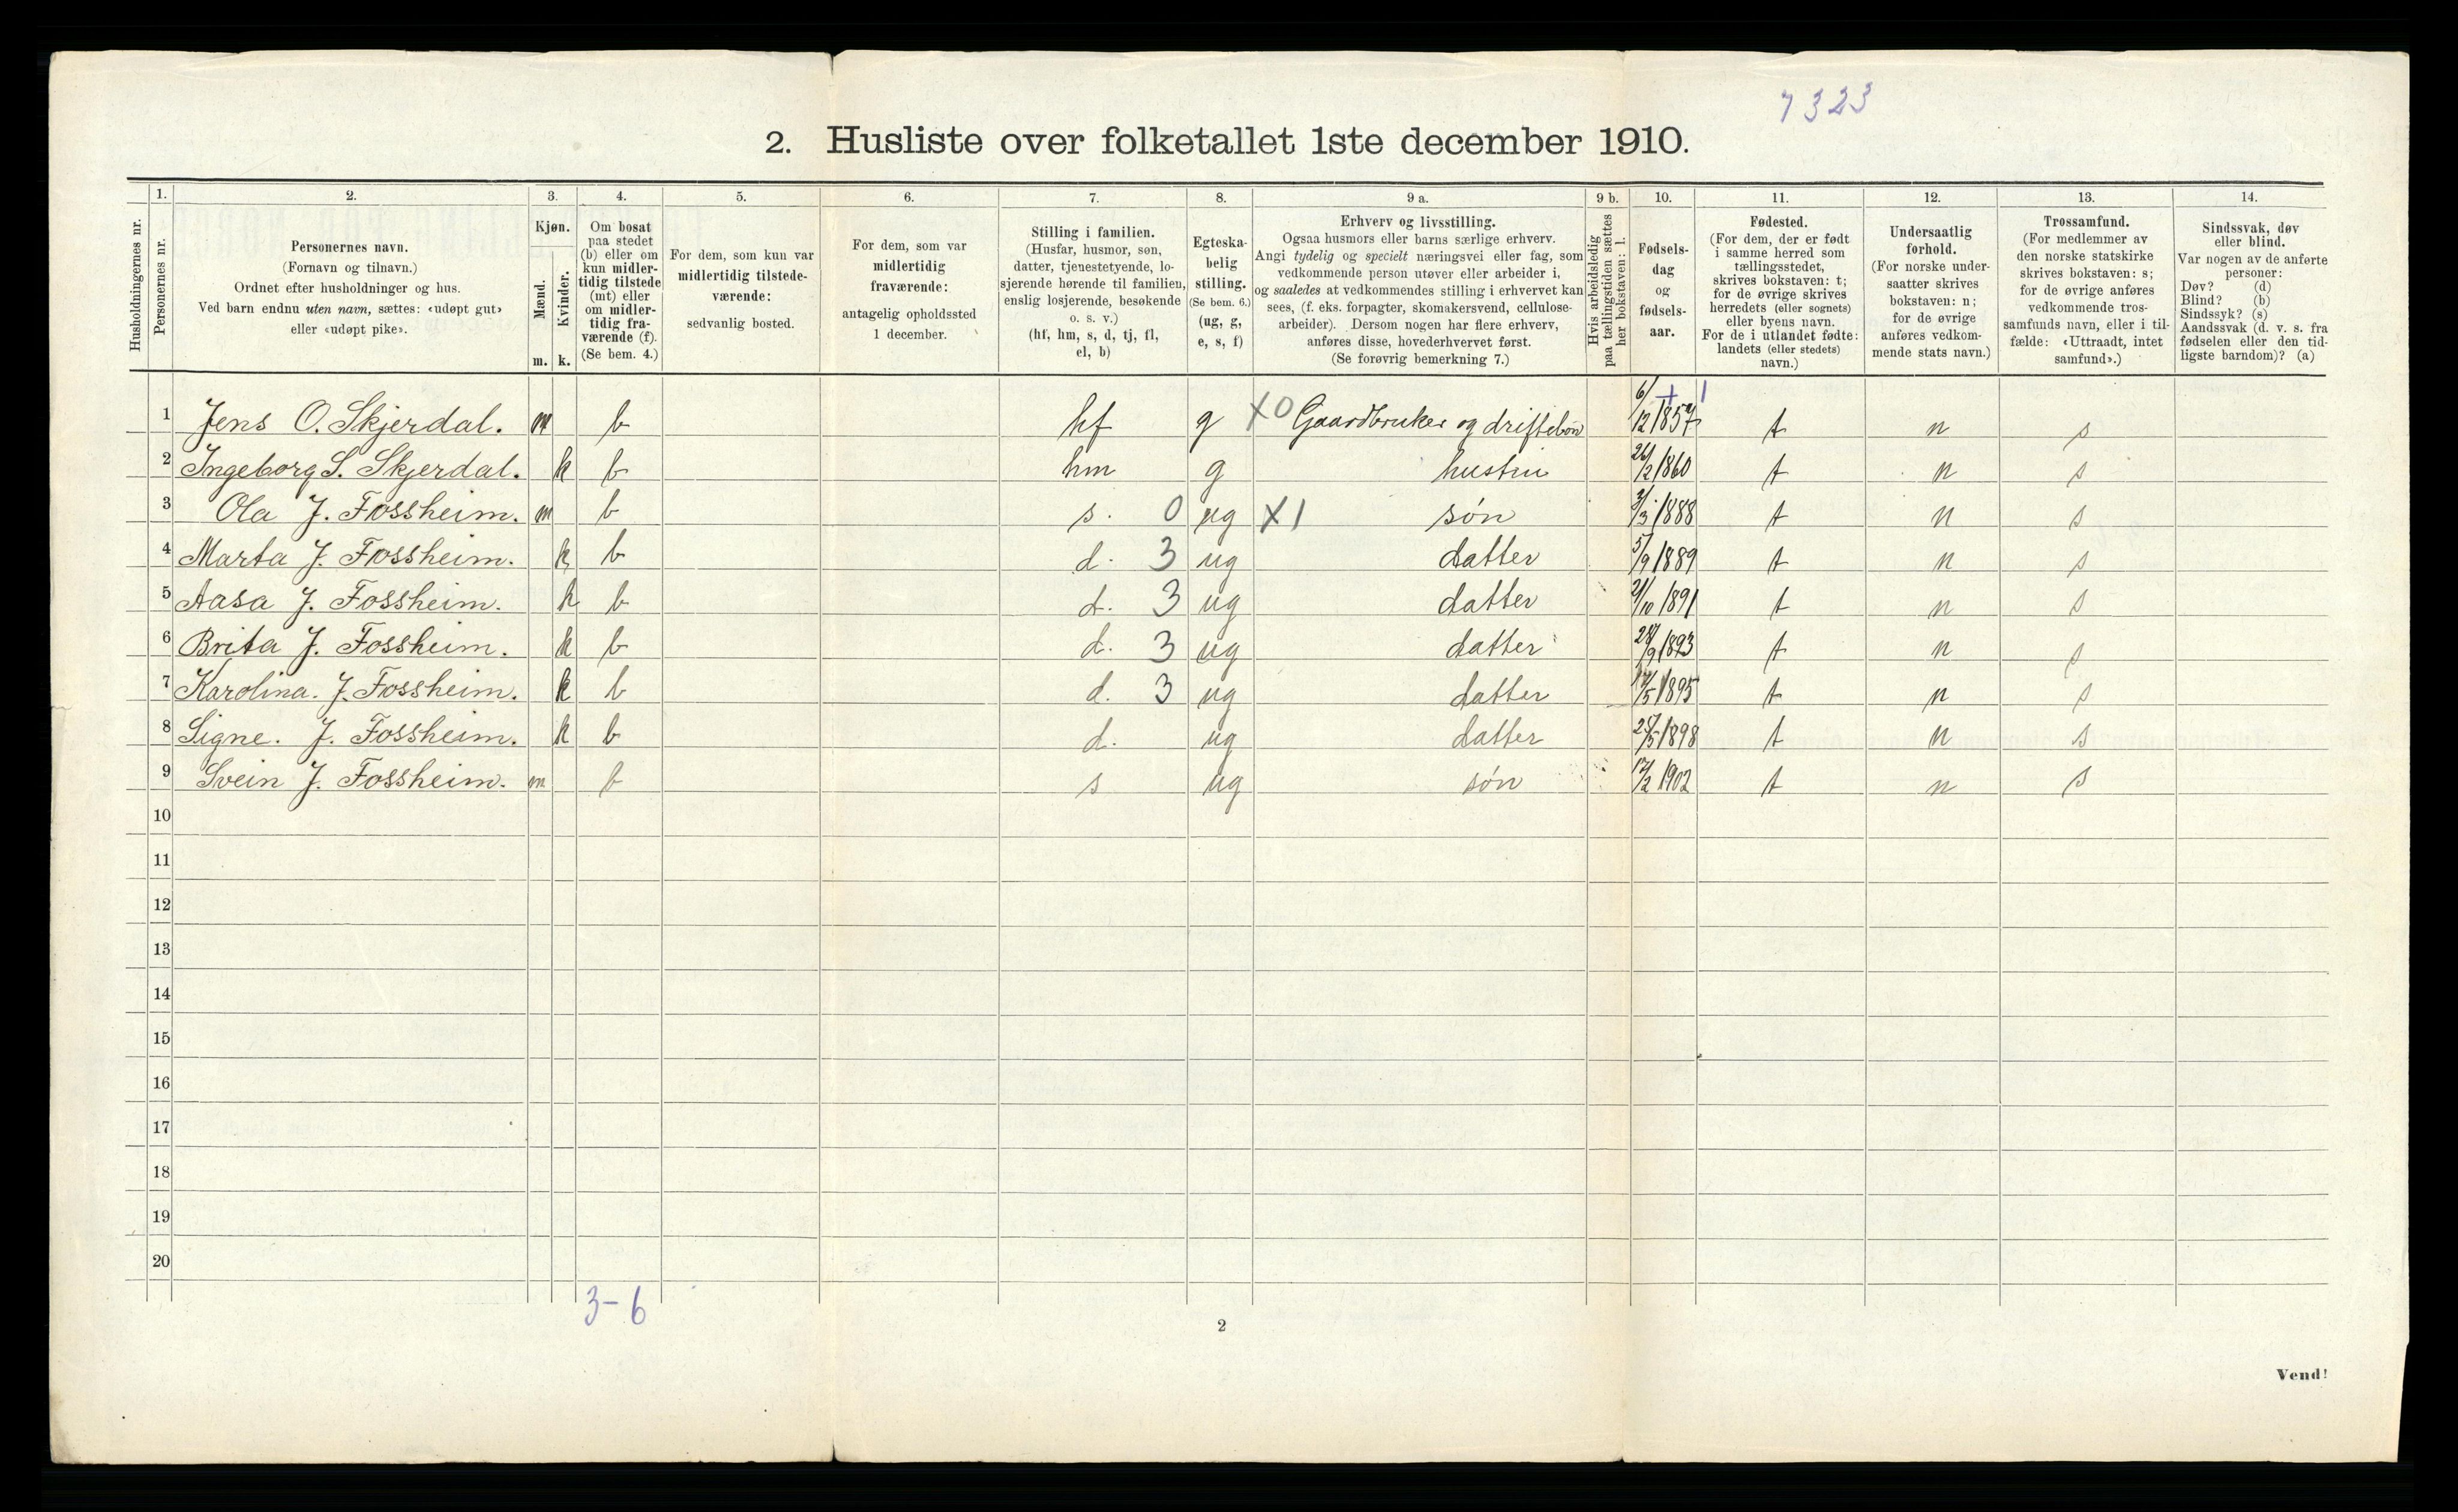 7323
2. Husliste over folketallet 1ste december 1910.
Husholdningernes nr.
1. Personernes nr.
2. Personernes navn. (Fornavn og tilnavn.) Ordnet efter husholdninger og hus. Ved barn endnu uten navn, sættes: «udøpt gut» eller «udøpt pike».
3. Kjøn. Mænd. m. Kvinder. k.
4. Om bosat paa stedet (b) eller om kun midlertidig tilstede (mt) eller om midlertidig fraværende (f). (Se bem. 4.)
5. For dem, som kun var midlertidig tilstedeværende: sedvanlig bosted.
6. For dem, som var midlertidig fraværende: antagelig opholdssted 1 december.
7. Stilling i familien. (Husfar, husmor, søn, datter, tjenestetyende, losjerende hørende til familien, enslig losjerende, besøkende o. s. v.) (hf, hm, s, d, tj, fl, el, b)
8. Egteskabelig stilling. (Se bem. 6.) (ug, g, e, s, f)
9 a. Erhverv og livsstilling. Ogsaa husmors eller barns særlige erhverv. Angi tydelig og specielt næringsvei eller fag, som vedkommende person utøver eller arbeider i, og saaledes at vedkommendes stilling i erhvervet kan sees, (f. eks. forpagter, skomakersvend, cellulosearbeider). Dersom nogen har flere erhverv, anføres disse, hovederhvervet først. (Se forøvrig bemerkning 7.)
9 b. Hvis arbeidsledig paa tællingstiden sættes her bokstaven: l.
10. Fødselsdag og fødselsaar.
11. Fødested. (For dem, der er født i samme herred som tællingsstedet, skrives bokstaven: t; for de øvrige skrives herredets (eller sognets) eller byens navn. For de i utlandet fødte: landets (eller stedets) navn.)
12. Undersaatlig forhold. (For norske undersaatter skrives bokstaven: n; for de øvrige anføres vedkommende stats navn.)
13. Trossamfund. (For medlemmer av den norske statskirke skrives bokstaven: s; for de øvrige anføres vedkommende trossamfunds navn, eller i tilfælde: «Uttraadt, intet samfund».)
14. Sindssvak, døv eller blind. Var nogen av de anførte personer: Døv? (d) Blind? (b) Sindssyk? (s) Aandssvak (d. v. s. fra fødselen eller den tidligste barndom)? (a)
1 Jens O. Skjerdal. m b hf g X0 Gaardbruker og driftebon 6/12 1857 + 1 t n s
2 Ingeborg S. Skjerdal. k b hm g hustru 26/2 1860 t n s
3 Ola J. Fossheim. m b s. 0 ug X1 søn 3/3 1888 t n s
4 Marta J. Fossheim. k b d. 3 ug datter 5/9 1889 t n s
5 Aasa J. Fossheim. k b d. 3 ug datter 21/10 1891 t n s
6 Brita J. Fossheim. k b d. 3 ug datter 28/9 1893 t n s
7 Karolina. J. Fossheim. k b d. 3 ug datter 17/5 1895 t n s
8 Signe. J. Fossheim. k b d. ug datter 25/5 1898 t n s
9 Svein J. Fossheim. m b s ug søn 17/2 1902 t n s
10
11
12
13
14
15
16
17
18
19
20
3-6
2
Vend!